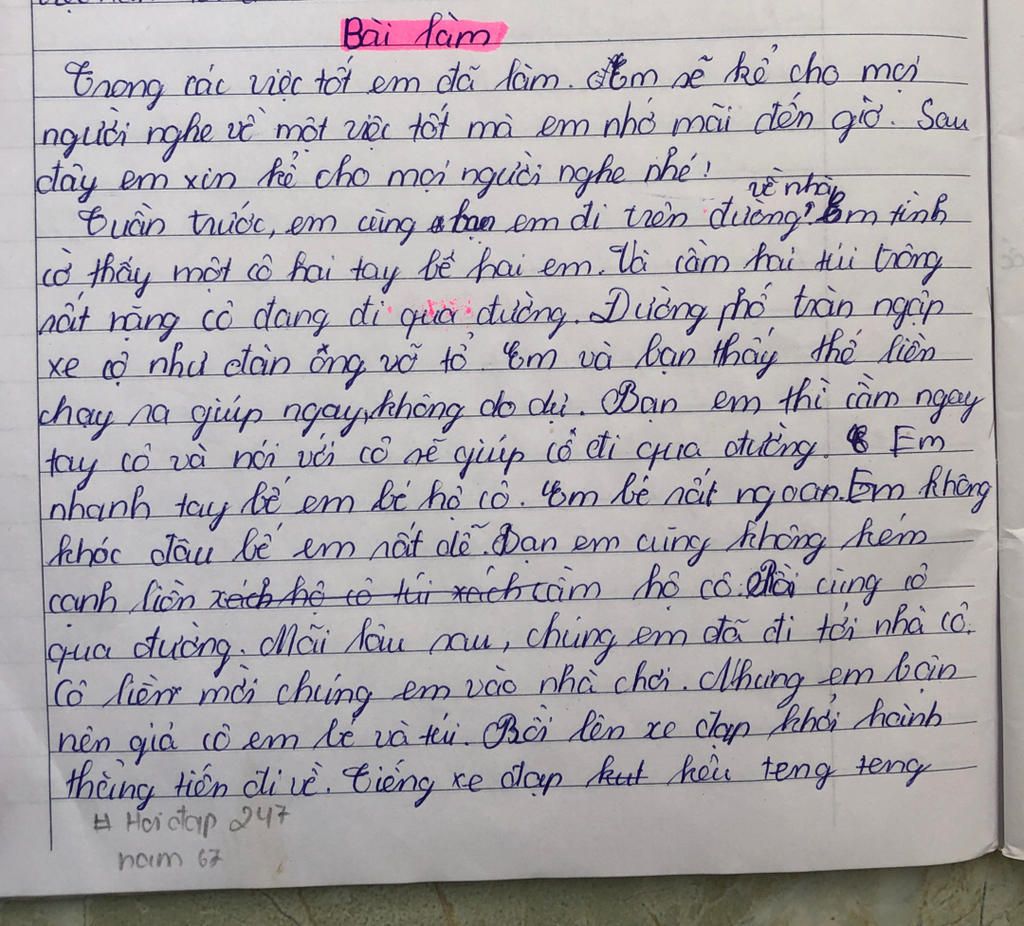 Bài làm
Trong các việc tốt em đã làm. Em sẽ kể cho mọi
người nghe về một việc tốt mà em nhớ mãi đến giờ. Sau
đây em xin kể cho mọi người nghe nhé!
về nhà
Tuần trước, em cùng bạn em đi trên đường. Em tình
cờ thấy một cô hai tay bế hai em. Và cầm hai túi trông
rất nặng cô đang đi qua đường. Đường phố tràn ngập
xe cộ như đàn ong vỡ tổ. Em và bạn thấy thế liền
chạy ra giúp ngay, không do dự. Bạn em thì cầm ngay
tay cô và nói với cô sẽ giúp cô đi qua đường. Em
nhanh tay bế em bé hộ cô. Em bé rất ngoan. Em không
khóc đâu bế em rất dễ. Bạn em cũng không kém
cạnh liền xách hộ cô túi xách cầm hộ cô. Rồi cùng cô
qua đường. Mãi lâu sau, chúng em đã đi tới nhà cô.
Cô liền mời chúng em vào nhà chơi. Nhưng em bận
nên giả cô em bé và túi. Rồi lên xe đạp khởi hành
thẳng tiến đi về. Tiếng xe đạp kut kêu teng teng
# Hoi đap 247
nam 67